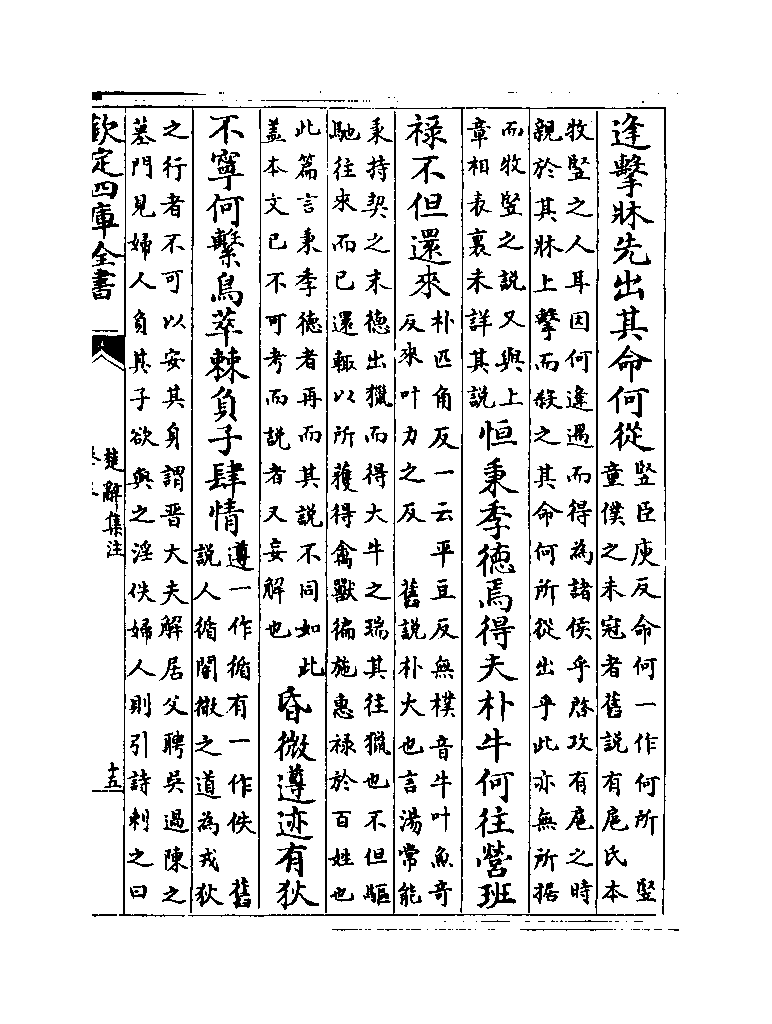 逢擊牀先出其命何從
竪臣庾反命何一作何所 竪
童僕之未冠者舊説有扈氏本
牧竪之人耳因何逢遇而得為諸侯乎啓攻有扈之時
親於其牀上擊而殺之其命何所從出乎此亦無所据
而牧竪之説又與上
章相表裏未詳其説
恒秉季德焉得夫朴牛何往營班
禄不但還來
朴匹角反一云平豆反無樸音牛叶魚奇
反來叶力之反 舊説朴大也言湯常能
秉持契之末德出獵而得大牛之瑞其往獵也不但驅
馳往來而已還輙以所獲得禽獸徧施惠禄於百姓也
此篇言秉季德者再而其説不同如此
盖本文已不可考而説者又妄解也
昏微遵迹有狄
不寧何繁鳥萃棘負子肆情
遵一作循有一作佚 舊
説人循闇㣲之道為戎狄
之行者不可以安其身謂晋大夫解居父聘吳過陳之
墓門見婦人負其子欲與之淫佚婦人則引詩刺之曰
欽定四庫全書
楚辭集注
十五